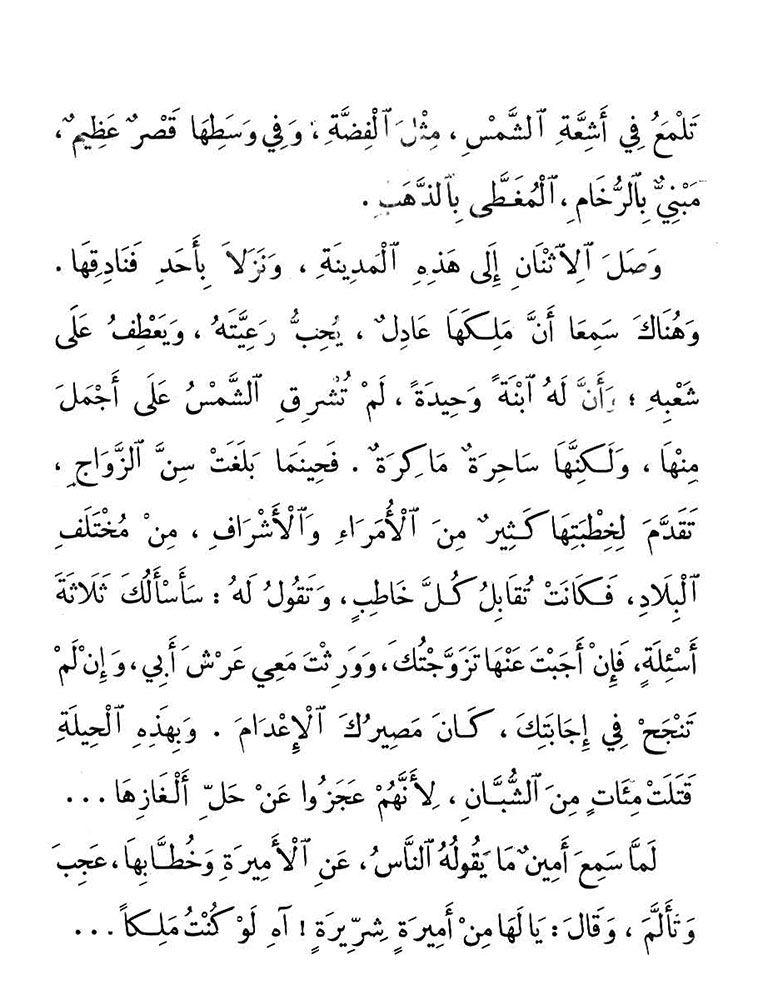 تَلْمَعُ فِي أَشِعَّةِ ٱلشَّمْسِ، مِثْلَ ٱلْفِضَّةِ، وَفِي وَسَطِهَا قَصْرٌ عَظِيمٌ،
مَبْنِيٌّ بِٱلرُّخَامِ، ٱلْمُغَطَّى بِٱلذَّهَبِ.
وَصَلَ ٱلِاثْنَانِ إِلَى هَذِهِ ٱلْمَدِينَةِ، وَنَزَلَا بِأَحَدِ فَنَادِقِهَا.
وَهُنَاكَ سَمِعَا أَنَّ مَلِكَهَا عَادِلٌ، يُحِبُّ رَعِيَّتَهُ، وَيَعْطِفُ عَلَى
شَعْبِهِ؛ وَأَنَّ لَهُ ٱبْنَةً وَحِيدَةً، لَمْ تُشْرِقِ ٱلشَّمْسُ عَلَى أَجْمَلَ
مِنْهَا، وَلَكِنَّهَا سَاحِرَةٌ مَاكِرَةٌ. فَحِينَمَا بَلَغَتْ سِنَّ ٱلزَّوَاجِ،
تَقَدَّمَ لِخِطْبَتِهَا كَثِيرٌ مِنَ ٱلْأُمَرَاءِ وَٱلْأَشْرَافِ، مِنْ مُخْتَلَفِ
ٱلْبِلَادِ، فَكَانَتْ تُقَابِلُ كُلَّ خَاطِبٍ، وَتَقُولُ لَهُ: سَأَسْأَلُكَ ثَلَاثَةَ
أَسْئِلَةٍ، فَإِنْ أَجَبْتَ عَنْهَا تَزَوَّجْتُكَ، وَوَرِثْتَ مَعِي عَرْشَ أَبِي، وَإِنْ لَمْ
تَنْجَحْ فِي إِجَابَتِكَ، كَانَ مَصِيرُكَ ٱلْإِعْدَامَ. وَبِهَذِهِ ٱلْحِيلَةِ
قَتَلَتْ مِئَاتٍ مِنَ ٱلشُّبَّانِ، لِأَنَّهُمْ عَجَزُوا عَنْ حَلِّ أَلْغَازِهَا...
لَمَّا سَمِعَ أَمِينٌ مَا يَقُولُهُ ٱلنَّاسُ، عَنِ ٱلْأَمِيرَةِ وَخُطَّابِهَا، عَجِبَ
وَتَأَلَّمَ، وَقَالَ: يَا لَهَا مِنْ أَمِيرَةٍ شِرِّيرَةٍ! آهِ لَوْ كُنْتُ مَلِكاً...